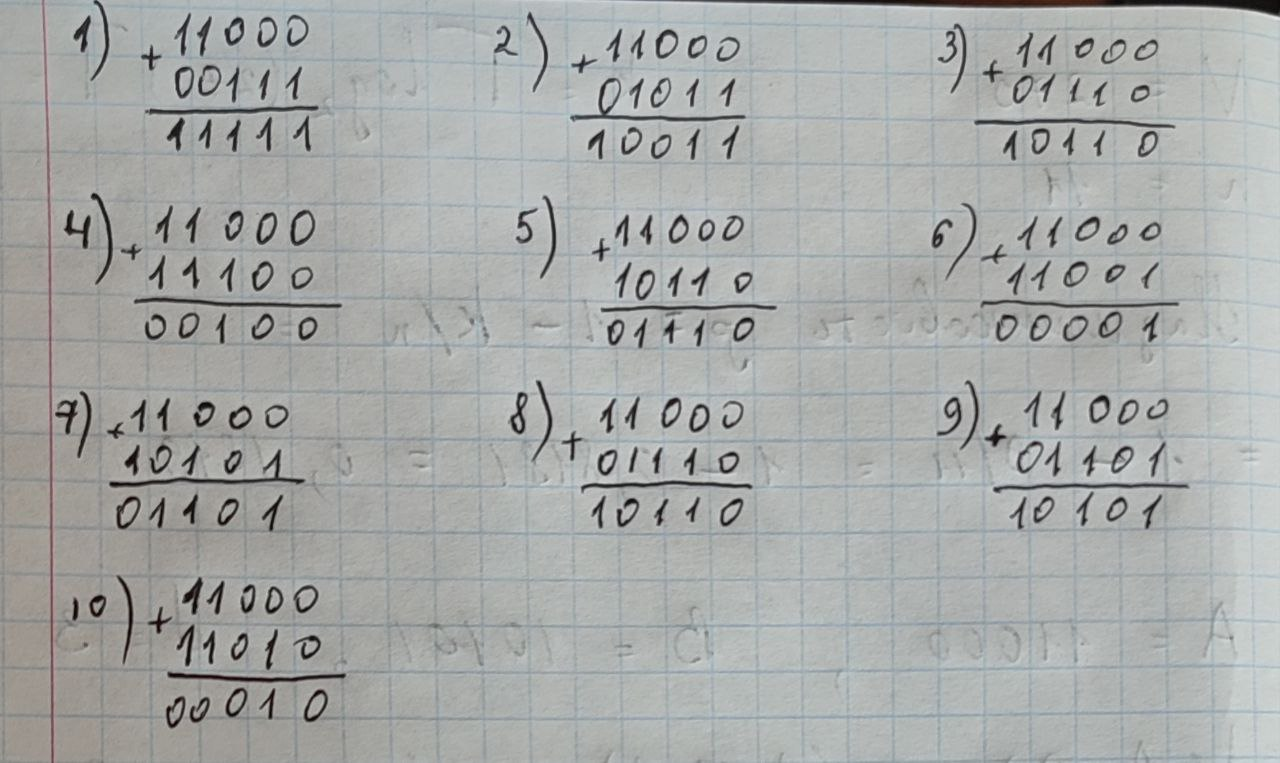 1) + 11000
00111
11111
2) + 11000
01011
10011
3) + 11000
01110
10110
4) + 11000
11100
00100
5) + 11000
10110
01110
6) + 11000
11001
00001
7) + 11000
10101
01101
8) + 11000
01110
10110
9) + 11000
01101
10101
10) + 11000
11010
00010